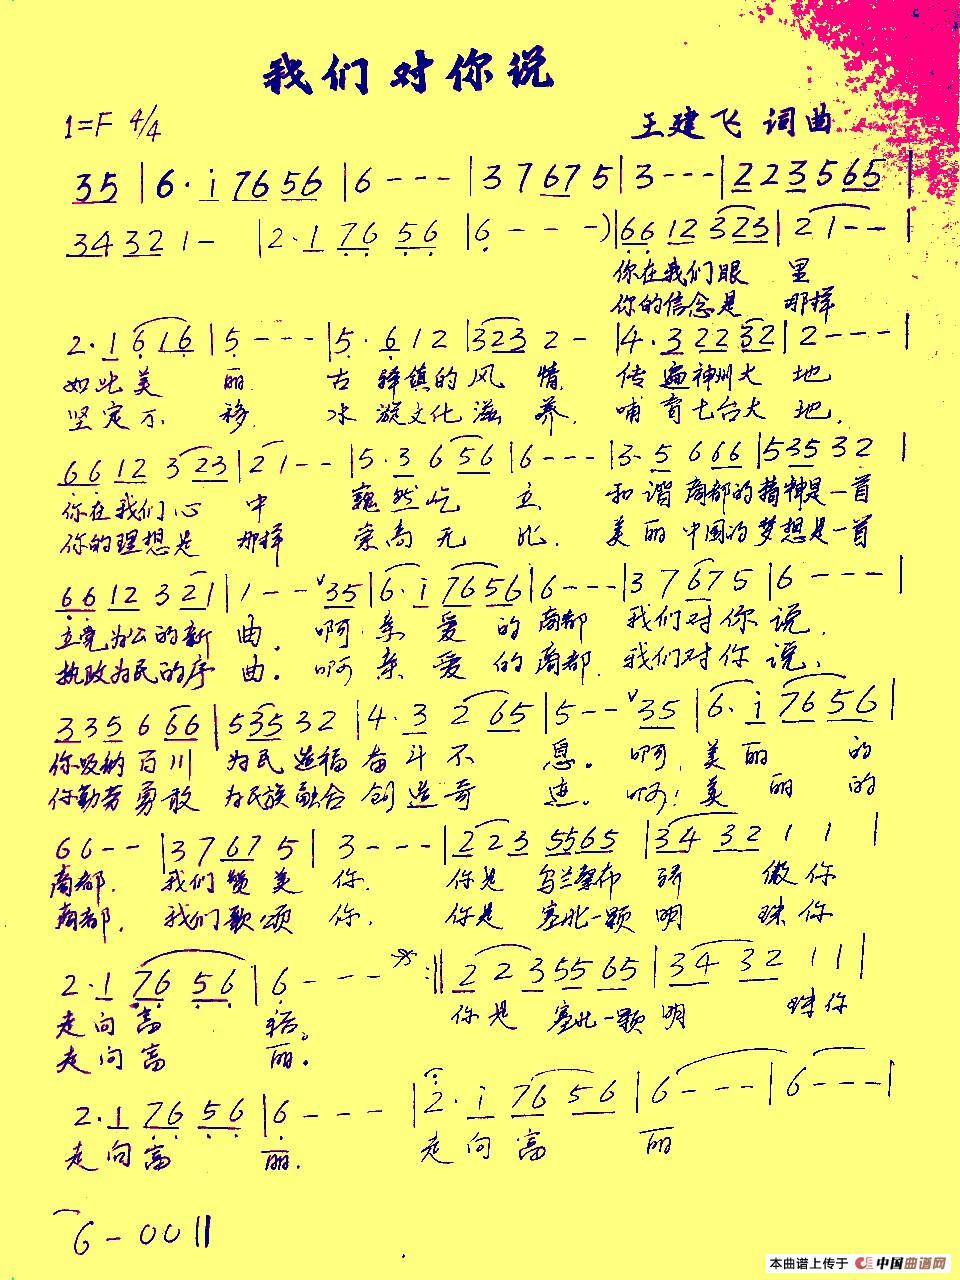 我们对你说
1=F 4/4
王建飞 词曲
35 | 6·i 76 56 | 6 - - - | 3 7 67 5 | 3 - - - | 2 23 5 65 |
34 32 1 - | 2·1 76 56 | 6 - - - ) | 66 12 323 | 2 1 - - |
你在我们眼 里
你的信念是 那样
2·1 6 16 | 5 - - - | 5·6 1 2 | 323 2 - | 4·3 22 32 | 2 - - - |
如此美 丽 古 驿镇的风 情 传遍神州大 地
坚定不 移 水 漩文化滋 养 哺育七台大 地
66 12 3 23 | 2 1 - - | 5·3 6 56 | 6 - - - | 3·5 6 66 | 535 32 |
你在我们心 中 巍然屹 立 和谐商都的精神是一首
你的理想是 那样 崇高无 比 美丽中国的梦想是一首
66 12 3 21 | 1 - - v35 | 6·i 76 56 | 6 - - - | 3 7 67 5 | 6 - - - |
立党为公的新 曲。 啊 亲 爱 的 商都 我们对你 说,
执政为民的序 曲。 啊 亲 爱 的 商都 我们对你 说,
3 35 6 66 | 535 32 | 4·3 2 65 | 5 - - v35 | 6·i 76 56 |
你吸纳百川 为民造福奋斗不 息。 啊, 美 丽 的
你勤劳勇敢 为民族融合创造奇 迹。 啊! 美 丽 的
66 - - | 3 7 67 5 | 3 - - - | 2 23 55 65 | 34 32 1 1 |
商都, 我们赞美 你, 你是 乌兰察布 骄 傲你
商都, 我们歌颂 你, 你是 塞北一颗 明 珠你
2·1 76 56 | 6 - - - :‖ 2 23 55 65 | 34 32 1 1 |
走向富 裕。 你是 塞北一颗明 珠你
走向富 丽。
2·1 76 56 | 6 - - - | 2·i 76 56 | 6 - - - | 6 - - - |
走向富 丽. 走向富 丽
6 - 0 0 ‖
本曲谱上传于 中国曲谱网